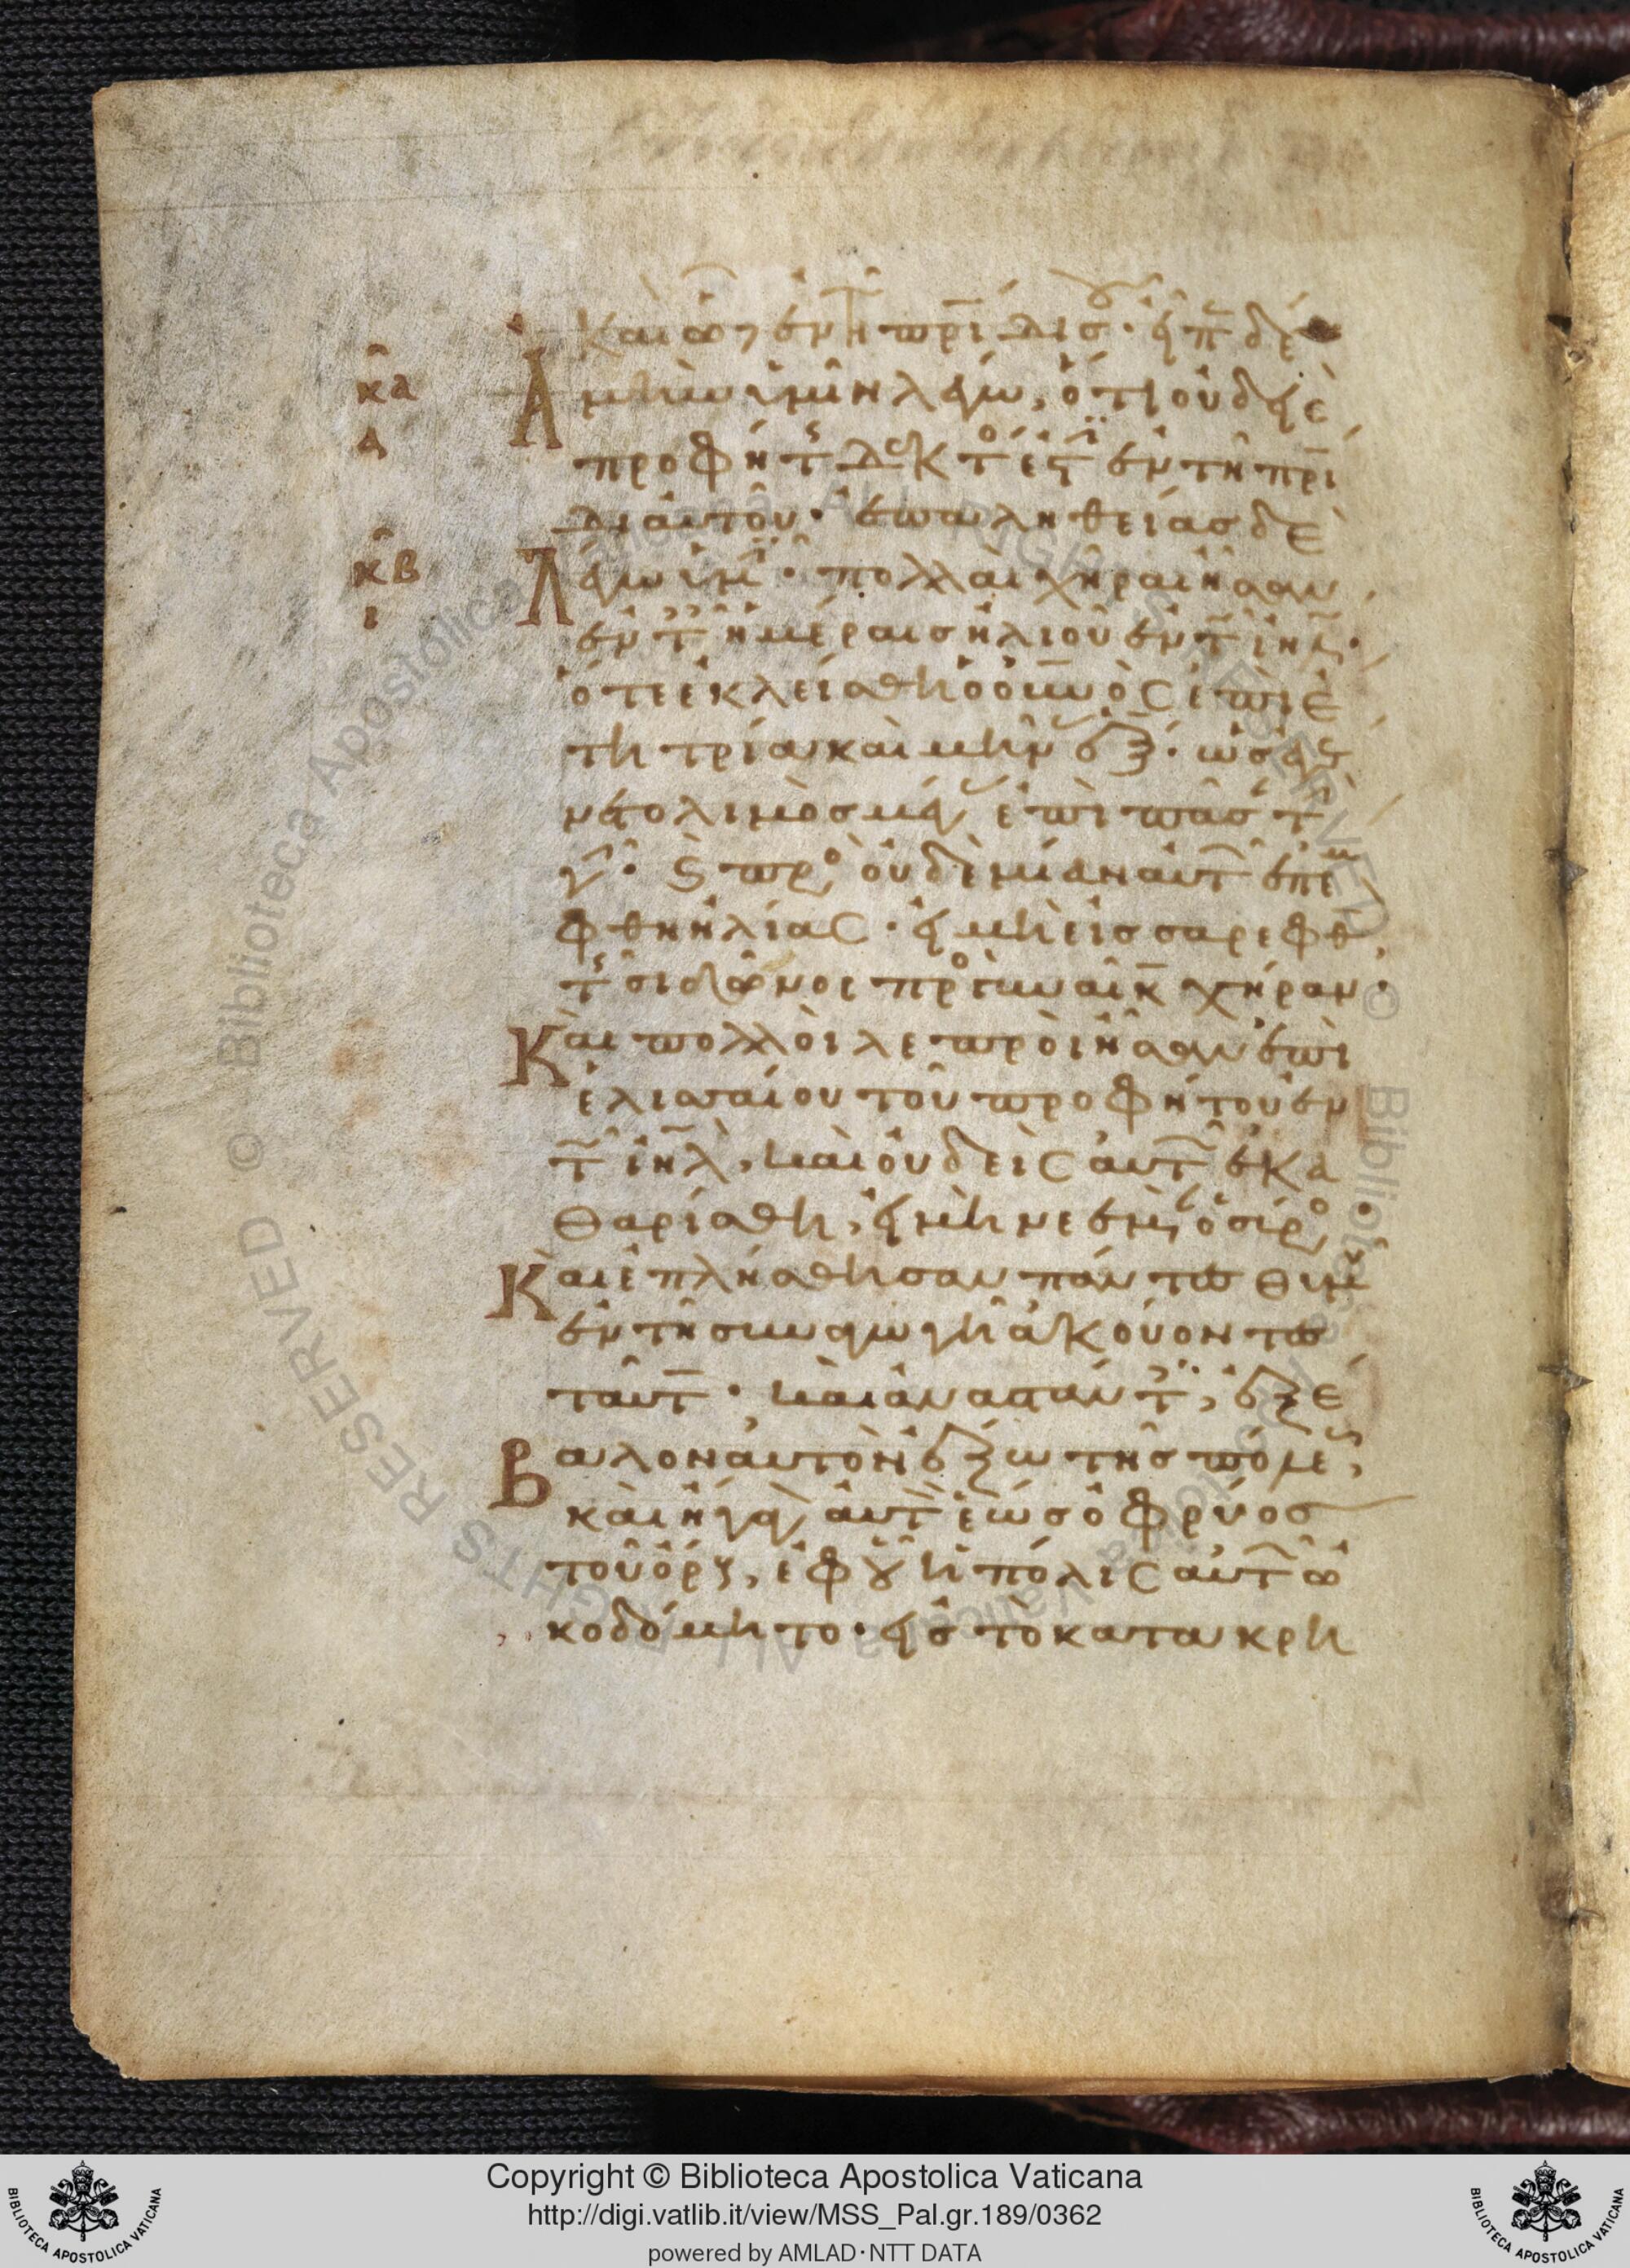 καὶ ὧδε ἐν τῆ πρίδι σου· εἶπε δέ
κα
δ
Ἀμὴν ὑμῖν λέγω, ὅτι οὐδεὶς
προφήτης δεκτός ἐστιν ἐν τῆ πρί
δι αὐτοῦ· ἐπ ἀληθείας δὲ
κβ
ι
Λέγω ὑμῖν· πολλαὶ χῆραι ἦσαν
ἐν ταῖς ἡμέραις ἠλιοῦ ἐν τῶ ἰηλ·
ὅτε ἐκλείσθη ὁ οὐνὸς ἐπὶ ἔ
τη τρία καὶ μῆνας ἕξ· ὡς ἐγέ
νετο λιμὸς μέγας ἐπὶ πᾶσαν τὴν
γῆν· καὶ πρὸς οὐδεμίαν αὐτῶν ἐπέμ
φθη ἠλίας· εἰ μὴ εἰς σαρεφθα
τῆς σιδῶνος πρὸς γυναῖκα χήραν·
Καὶ πολλοὶ λεπροὶ ἦσαν ἐπὶ
ἐλισαίου τοῦ προφήτου ἐν
τῶ ἰηλ, καὶ οὐδεὶς αὐτῶν ἐκα
θαρίσθη, εἰ μὴ νεεμὰν ὁ σύρος·
Καὶ ἐπλήσθησαν πάντες θυμοῦ
ἐν τῆ συναγωγῆ ἀκούοντες
ταῦτα· καὶ ἀναστάντες, ἐξέ
Βαλον αὐτὸν ἔξω τῆς πόλεως,
καὶ ἤγαγον αὐτὸν ἕως ὀφρύος
τοῦ ὄρους, ἐφ οὗ ἡ πόλις αὐτῶν ὠ
κοδόμητο· εἰς τὸ κατακρη
Copyright © Biblioteca Apostolica Vaticana
http://digi.vatlib.it/view/MSS_Pal.gr.189/0362
powered by AMLAD·NTT DATA